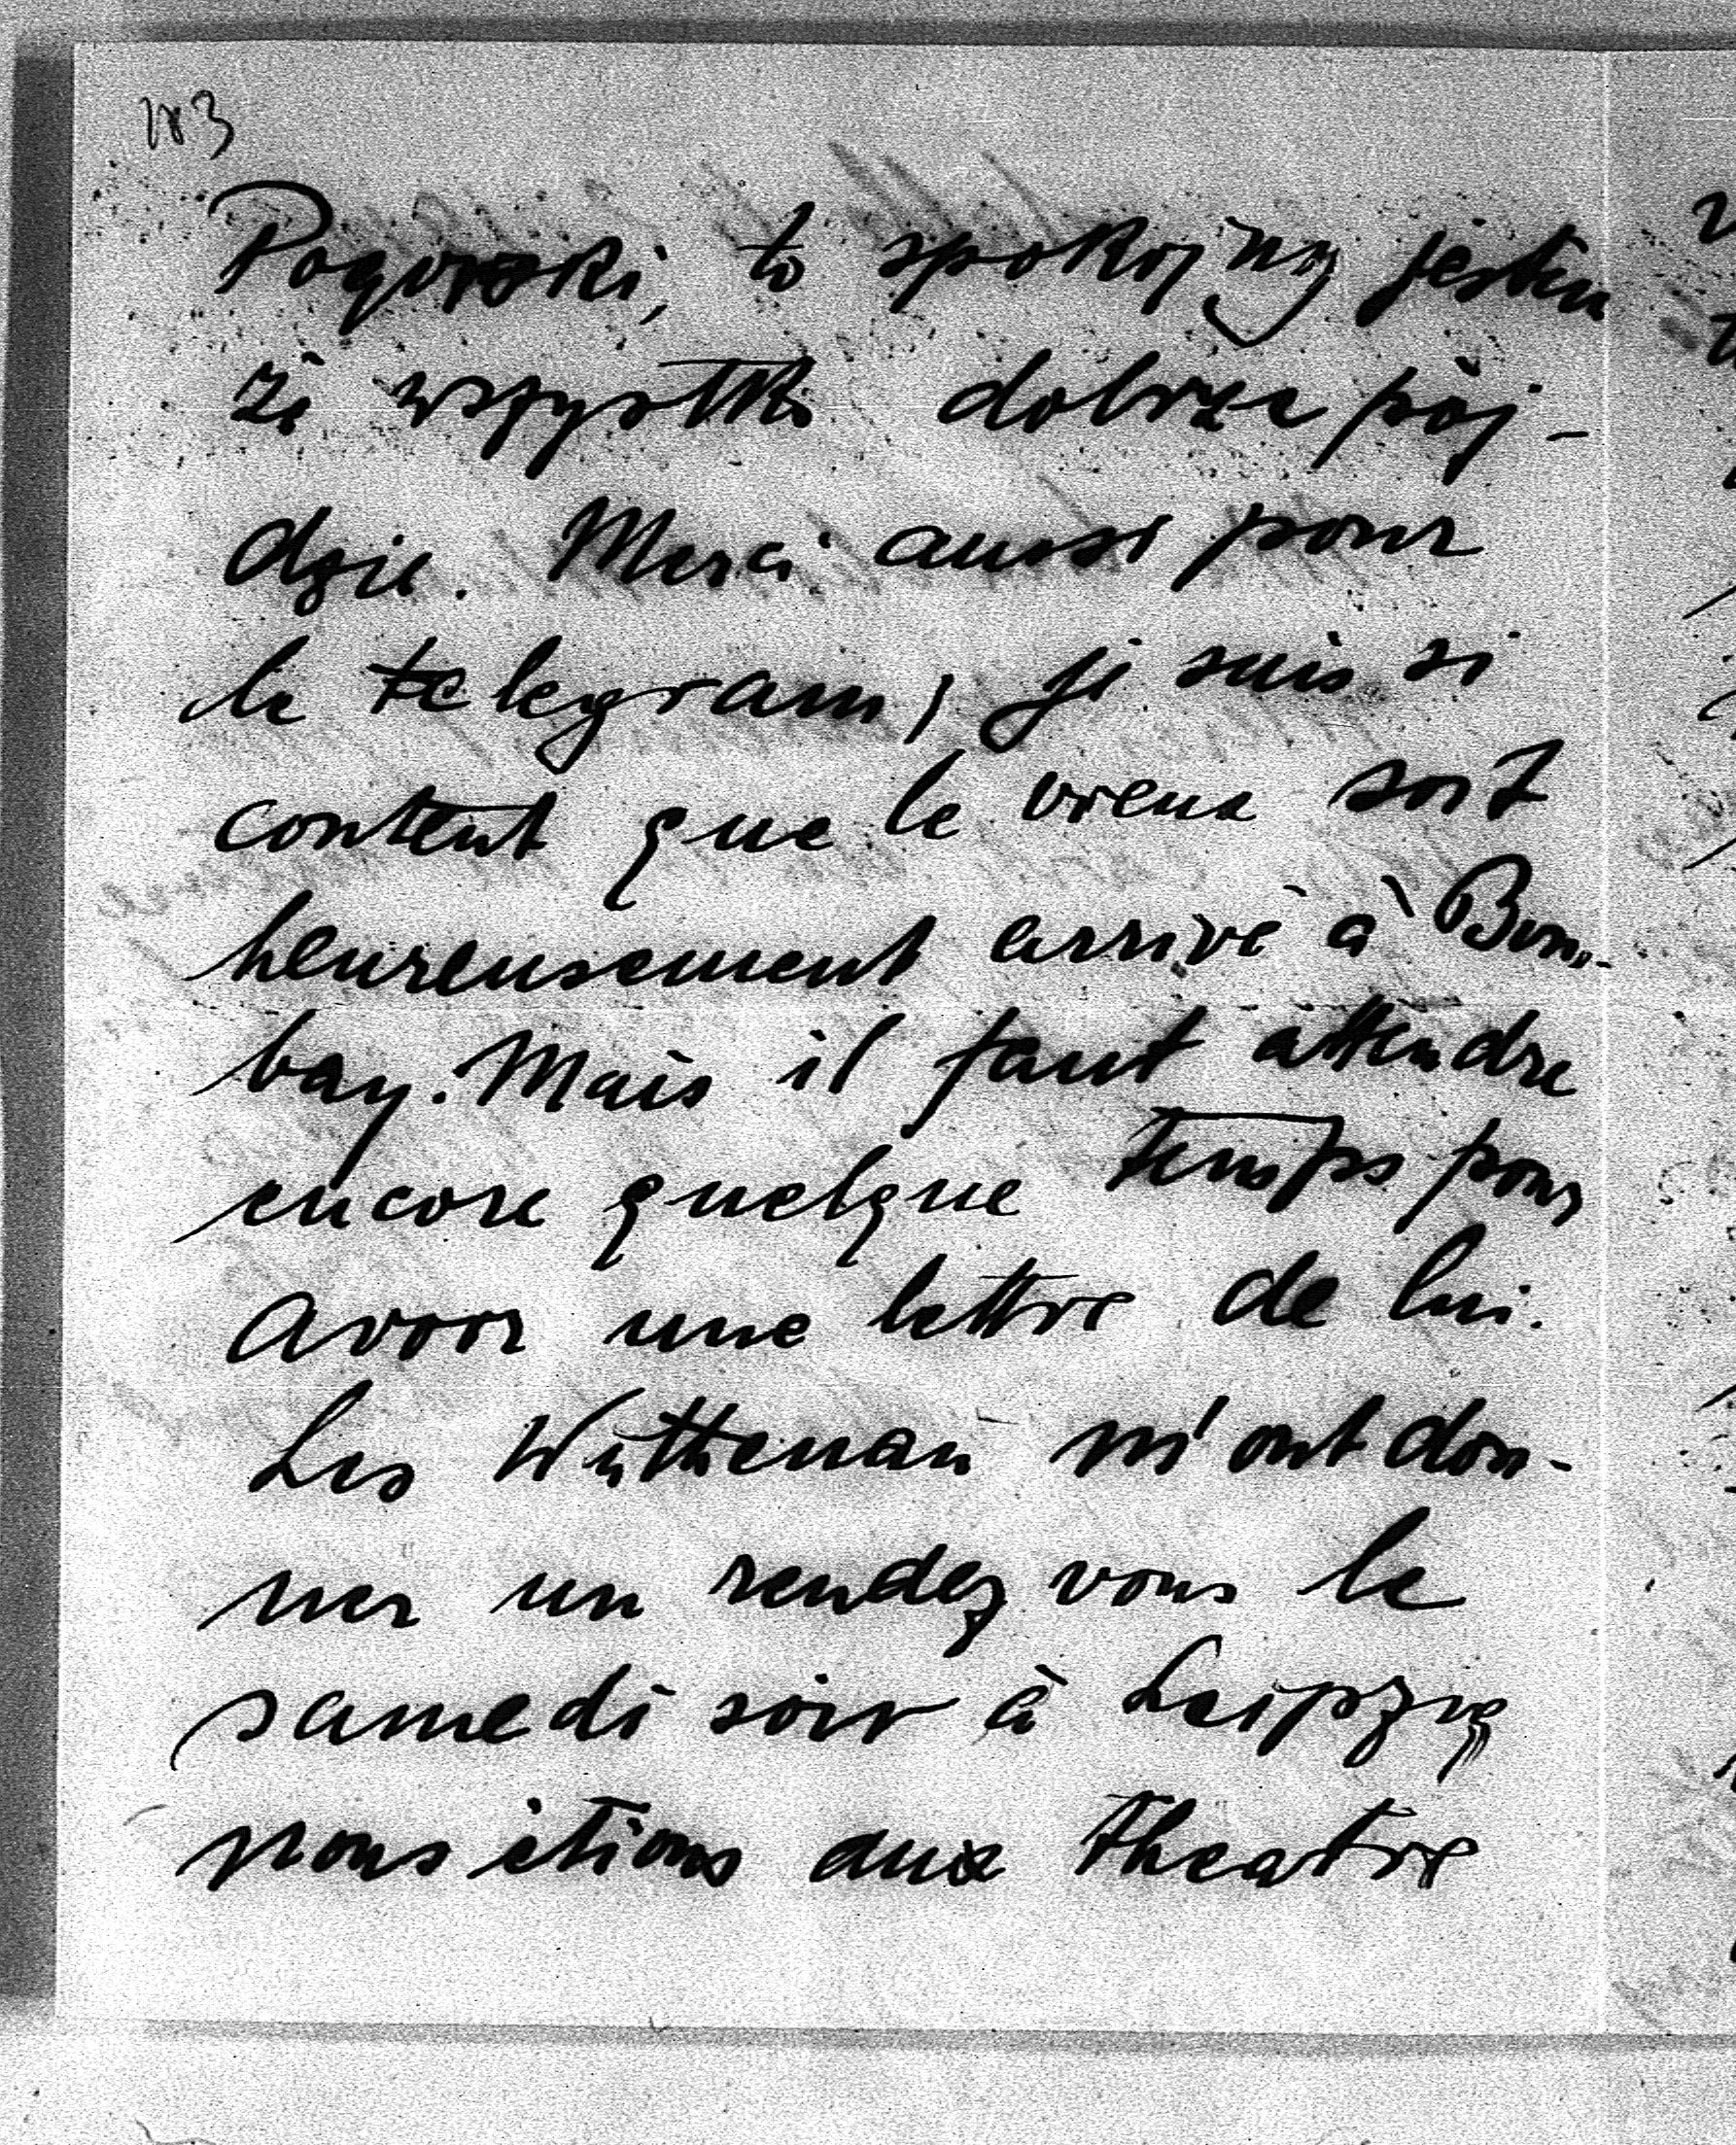 183
Pogorski, to spokojny jestem
że wszystko dobrze pój-
dzie. Merci aussi pour
le telegram, je suis si
content que le vieux soit
heureusement arrivé à Bom-
bay. Mais il faut attendre
encore quelque temps pour
avoir une lettre de lui.
Les Wuthenau m'ont don-
ner un rendez vous le
samedi soir à Leipzig
nous étions aux theatre